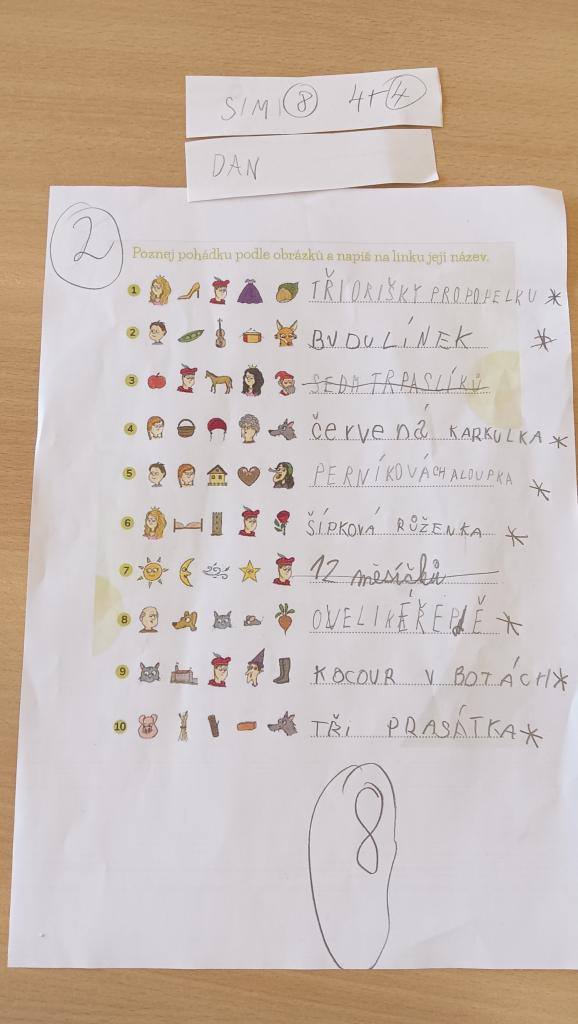 SIMI 8 4+4
DAN
2
Poznej pohádku podle obrázků a napiš na linku její název.
1 TŘI OŘIŠKY PRO POPELKU *
2 BUDULÍNEK *
3 SEDM TRPASLÍKŮ
4 červená KARKULKA *
5 PERNÍKOVÁ CHALOUPKA *
6 ŠÍPKOVÁ RŮŽENKA *
7 12 měsíčků
8 O VELIKÉ ŘEPĚ *
9 KOCOUR V BOTÁCH *
10 TŘi PRASÁTKA *
8